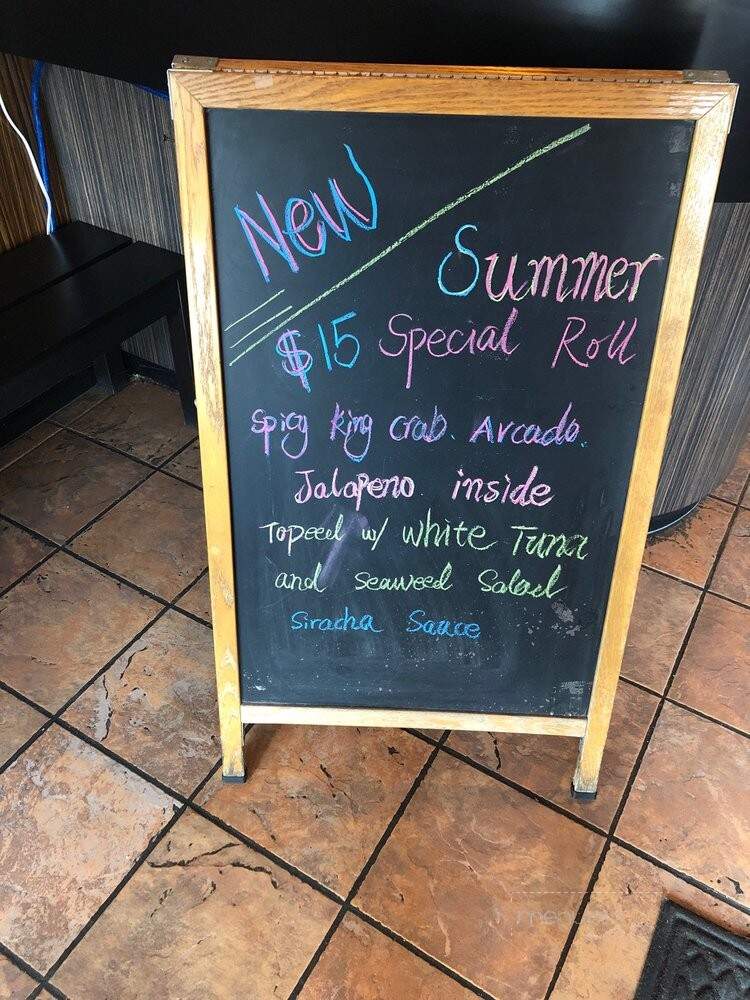 New
Summer
$15 Special Roll
Spicy king crab. Arcado.
Jalapeno inside
Topeed w/ white Tuna
and seaweed Salad
Siracha Sauce